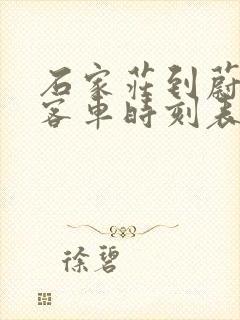 石家莊到蔚
客車時刻表
徐碧